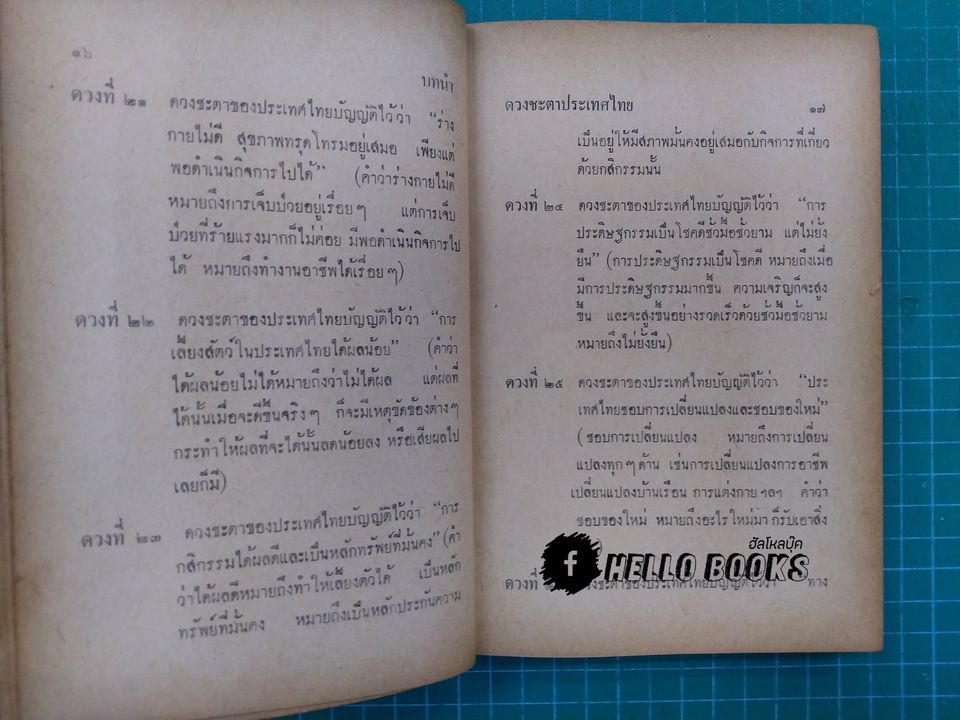 ๑๖
บทนำ
ดวงที่ ๒๑ ดวงชะตาของประเทศไทยบัญญัติไว้ว่า “ร่าง
กายไม่ดี สุขภาพทรุดโทรมอยู่เสมอ เพียงแต่
พอดำเนินกิจการไปได้” (คำว่าร่างกายไม่ดี
หมายถึงการเจ็บป่วยอยู่เรื่อยๆ แต่การเจ็บ
ป่วยที่ร้ายแรงมากก็ไม่ค่อย มีพอดำเนินกิจการไป
ได้ หมายถึงทำงานอาชีพได้เรื่อยๆ)
ดวงที่ ๒๒ ดวงชะตาของประเทศไทยบัญญัติไว้ว่า “การ
เลี้ยงสัตว์ในประเทศไทยได้ผลน้อย” (คำว่า
ได้ผลน้อยไม่ได้หมายถึงว่าไม่ได้ผล แต่ผลที่
ได้นั้นเมื่อจะดีขึ้นจริงๆ ก็จะมีเหตุขัดข้องต่างๆ
กระทำให้ผลที่จะได้นั้นลดน้อยลง หรือเสียผลไป
เลยก็มี)
ดวงที่ ๒๓ ดวงชะตาของประเทศไทยบัญญัติไว้ว่า “การ
กสิกรรมได้ผลดีและเป็นหลักทรัพย์ที่มั่นคง” (คำ
ว่าได้ผลดีหมายถึงทำให้เลี้ยงตัวได้ เป็นหลัก
ทรัพย์ที่มั่นคง หมายถึงเป็นหลักประกันความ
ดวงชะตาประเทศไทย ๑๗
เป็นอยู่ให้มีสภาพมั่นคงอยู่เสมอกับกิจการที่เกี่ยว
ด้วยกสิกรรมนั้น
ดวงที่ ๒๔ ดวงชะตาของประเทศไทยบัญญัติไว้ว่า “การ
ประดิษฐกรรมเป็นโชคดีชั่วมื้อชั่วยาม แต่ไม่ยั่ง
ยืน” (การประดิษฐกรรมเป็นโชคดี หมายถึงเมื่อ
มีการประดิษฐกรรมมากขึ้น ความเจริญก็จะสูง
ขึ้น และจะสูงขึ้นอย่างรวดเร็วด้วยชั่วมื้อชั่วยาม
หมายถึงไม่ยั่งยืน)
ดวงที่ ๒๕ ดวงชะตาของประเทศไทยบัญญัติไว้ว่า “ประ
เทศไทยชอบการเปลี่ยนแปลงและชอบของใหม่”
(ชอบการเปลี่ยนแปลง หมายถึงการเปลี่ยน
แปลงทุกๆ ด้าน เช่นการเปลี่ยนแปลงการอาชีพ
เปลี่ยนแปลงบ้านเรือน การแต่งกาย ฯลฯ คำว่า
ชอบของใหม่ หมายถึงอะไรใหม่มา ก็รับเอาสิ่ง
ฮัลโหลบุ๊ค
f HELLO BOOKS
ดวงที่ ดวงชะตาของประเทศไทยบัญญัติไว้ว่า “ทาง